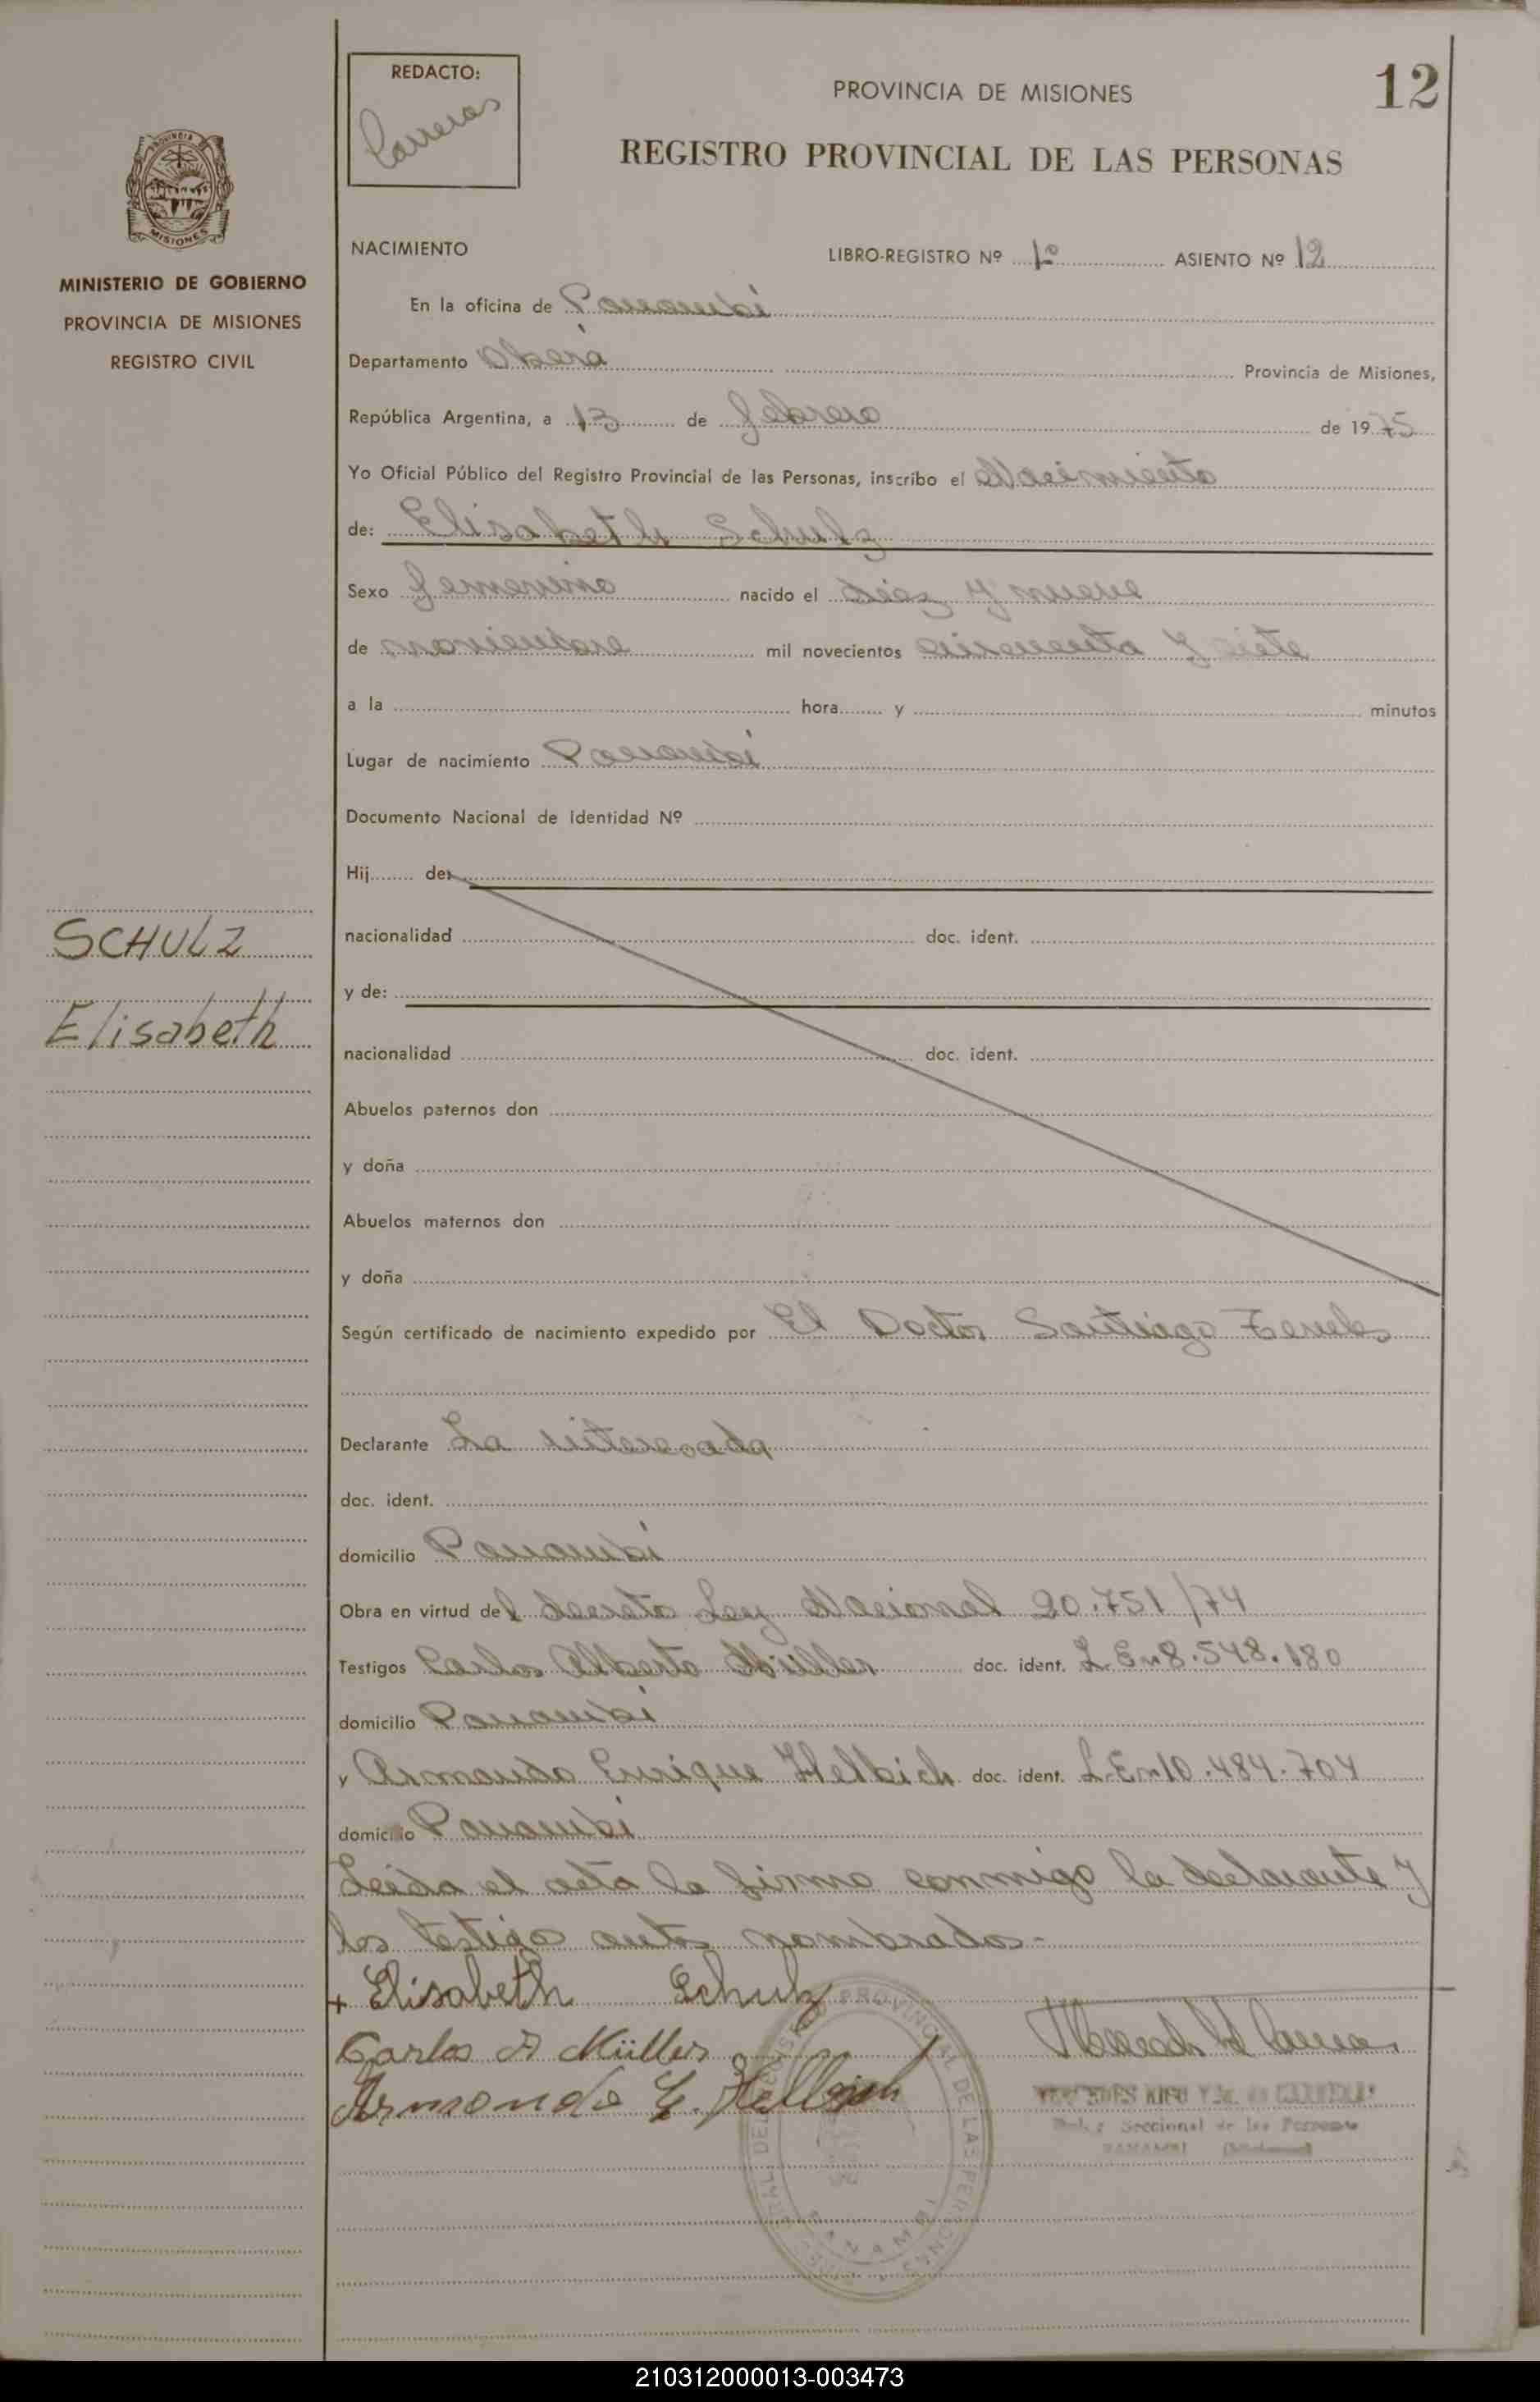 REDACTO:
Carreras
PROVINCIA DE MISIONES
12
REGISTRO PROVINCIAL DE LAS PERSONAS
MISIONES
MINISTERIO DE GOBIERNO
PROVINCIA DE MISIONES
REGISTRO CIVIL
NACIMIENTO LIBRO-REGISTRO Nº 1º ASIENTO Nº 12
En la oficina de Panambí
Departamento Oberá Provincia de Misiones,
República Argentina, a 13 de febrero de 1975
Yo Oficial Público del Registro Provincial de las Personas, inscribo el Nacimiento
de: Elisabeth Schulz
Sexo femenino nacido el diez y nueve
de noviembre mil novecientos cincuenta y siete
a la hora y minutos
Lugar de nacimiento Panambí
Documento Nacional de Identidad Nº
Hij de:
SCHULZ
nacionalidad doc. ident.
y de:
Elisabeth
nacionalidad doc. ident.
Abuelos paternos don
y doña
Abuelos maternos don
y doña
Según certificado de nacimiento expedido por El Doctor Santiago
Declarante La interesada
doc. ident.
domicilio Panambí
Obra en virtud del decreto Ley Nacional 20.751/74
Testigos Carlos Alberto Müller doc. ident. L.E.nº 8.548.180
domicilio Panambí
y Armando Enrique Helbich doc. ident. L.E.nº 10.484.704
domicilio Panambí
Leida el acta la firma conmigo la declarante y
los testigo antes nombrados.-
+ Elisabeth Schulz
Carlos A Müller
Armando E. Helbich
Seccional de las Personas
PANAMBI (Misiones)
210312000013-003473